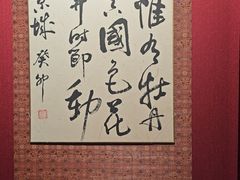 惟有牡丹
真國色花
開時節動
京城 癸卯